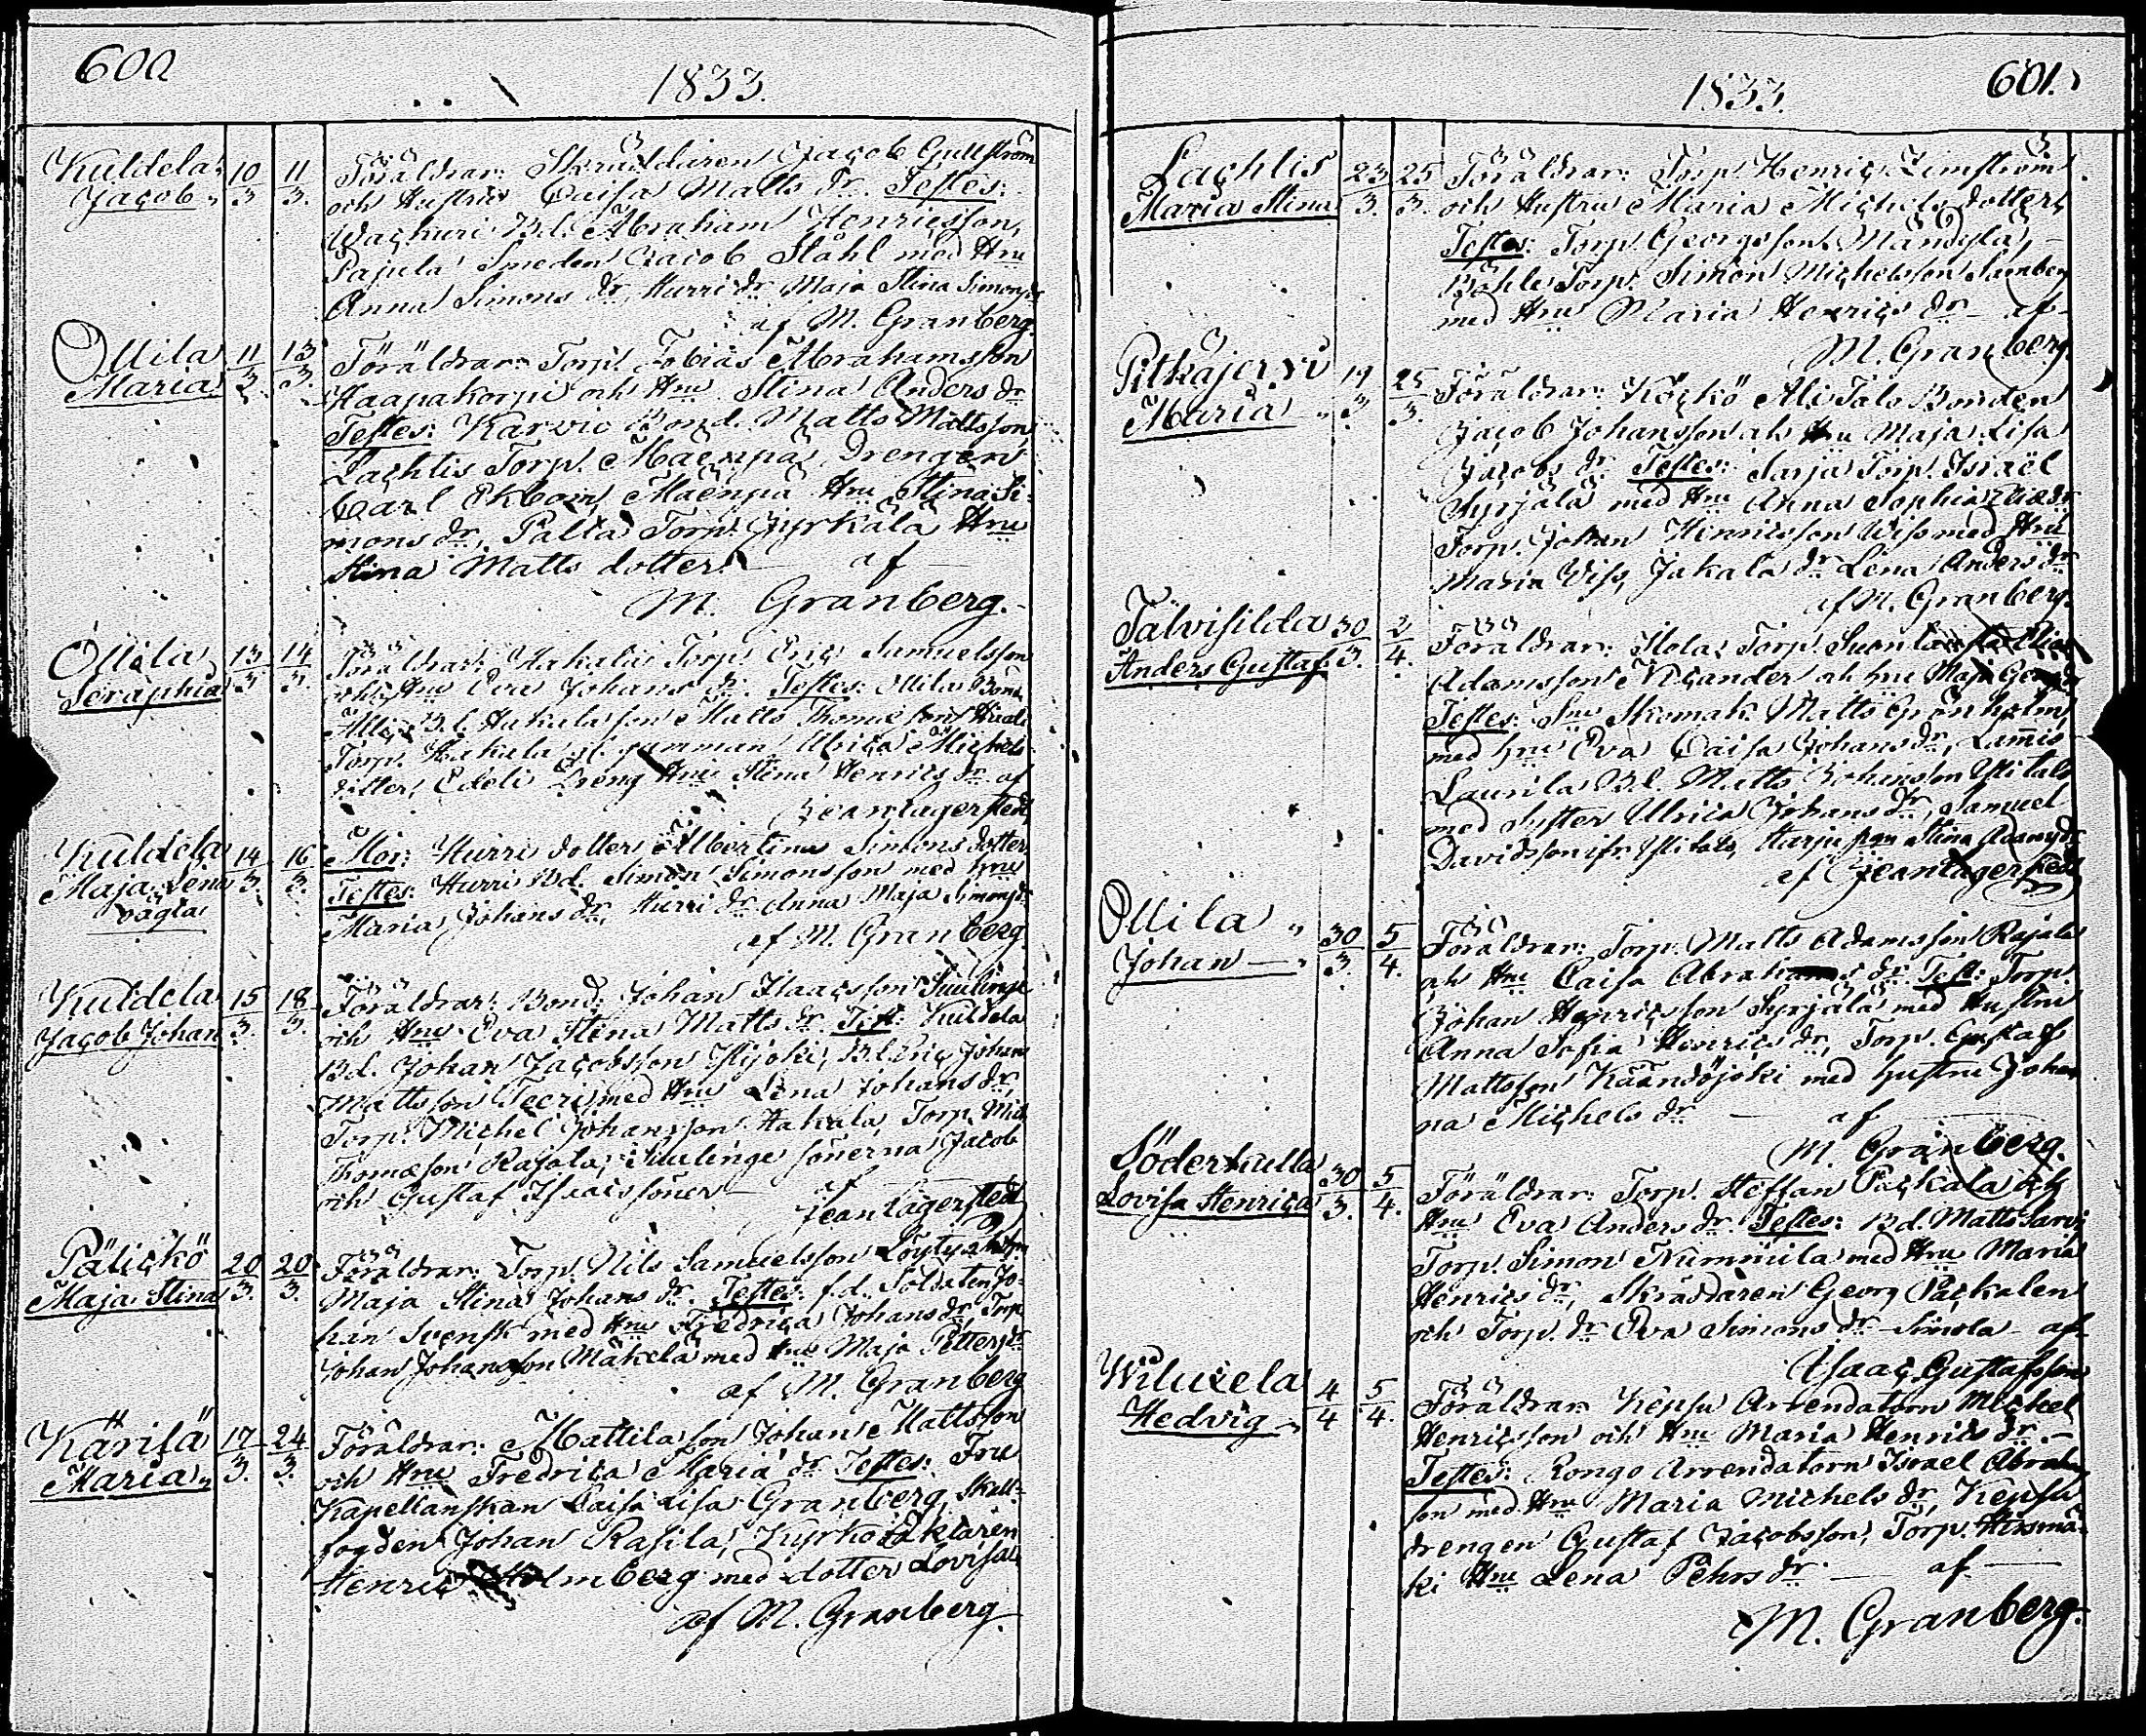 600
1833.
Kuldela 10/3 11/3. Föräldrar: Skräddaren Jacob Gullström
Jacob och Hustru Caisa Matts dr. Testes:
Wachuri Bd. Abraham Henricsson,
Pajula Smeden Jacob Ståhl med Hru
Anna Simons dr, Hurri dr Maja Stina Simonsdr
af M. Granberg.
Ollila 11/3. 13/3. Föräldrar: Torp. Tobias Abrahamsson
Maria Haapakorpi och Hru Stina Anders dr
Testes: Karvio Bond. Matts Mattsson,
Lachtis Torp. Mäenpää, Drengen
Carl Ekbom, Mäenpä Hru Stina Si-
mons dr, Palta Torp. Jyrkälä Hru
Stina Matts dotter af
M. Granberg.
Ollila 13/3. 14/3. Föräldrar: Hakala Torp. Eric Samuelsson
Seraphia och Hru Eva Johans dr. Testes: Ollila Bond.
Bd. Hakala son Matts Thomasson
Torp. Hakala gumman Ulrica Michels
dotter, Edeli Dreng Hru Stina Henrics dr. af
Jean Lagerstedt
Kuldela 14/3. 16/3. Mor: Hurri dotter Albertina Simons dotter
Maja Lena Testes: Hurri Bd. Simon Simonsson med hru
oägta Maria Johans dr, Hurri dr Anna Maja Simonsdr
af M. Granberg.
Kuldela 15/3. 18/3. Föräldrar: Bond. Johan Isaacsson Simlinge
Jacob Johan och Hru Eva Stina Matts dr. Test: Kuldela
Bd. Johan Jacobsson Ylijoki, Bd. Eric Johan
Mattsson Teeri med Hru Lena Johans dr,
Torp. Michel Johansson Hakala, Torp. Mich.
Thomasson Rajala, Simlinge sönerna Jacob
och Gustaf Isaacssöner af
Jean Lagerstedt
Päiickö 20/3. 20/3. Föräldrar: Torp. Nils Samuelsson Löyty
Maja Stina Maja Stina Johans dr. Testes: f.d. Soldaten Jo-
han Svensk med Hru Fredrica Johans dr, Torp.
Johan Johansson Mäkelä med hru Maja Pettersdr
af M. Granberg
Kärisä 17/3. 24/3. Föräldrar: Mattila son Johan Mattsson
Maria och Hru Fredrica Maria dr Testes: Fru
Kapellanskan Caisa Lisa Granberg, Skall-
fogden Johan Rasila, Kyrkoväktaren
Henric Holmberg med dotter Lovisa
af M. Granberg.
1833. 601.
Lachtis 23/3. 25/3. Föräldrar: Torp. Henric Limström
Maria Stina och Hustru Maria Michels dotter,
Testes: Torp. Georgsson Mändylä,
Torp. Simon Michelsson Lamberg
med Hru Maria Henrics dr af
M. Granberg.
Pitkäjervi 19/3 25/3. Föräldrar: Köckö Ali Talo Bonden
Maria Jacob Johansson och Hru Maja Lisa
Jacobs dr. Testes: Sarja Torp. Israël
Syrjälä med Hru Anna Sophia
Torp. Johan Henricsson Wiss med Hru
Maria Wiss, Jakala dr. Lena Anders dr
af M. Granberg.
Talvisilda 30/3. 2/4. Föräldrar: Isola Torp.
Anders Gustaf Adamsson Nicander och hru Maja
Testes: Skomak. Matts Grönholm,
med hru Eva Caisa Johans dr, Lammis
Laurila Bd. Matts Johansson Yli talo
med Syster Ulrica Johans dr, Samuel
Davidsson ifr. Yli talo, Harju Stina Adamsdr
af Jean Lagerstedt
Ollila 30/3. 5/4. Föräldrar: Torp. Matts Adamsson Rajala
Johan och Hru Caisa Abrahams dr. Test: Torp.
Johan Henricsson Syrjälä med Hustru
Anna Sofia Henrics dr, Torp. Gustaf
Mattsson Käändöjoki med hustru Johan-
na Michels dr af
M. Granberg.
Söderkulla 30/3. 5/4. Föräldrar: Torp. Steffan Päckala och
Lovisa Henrica Hru Eva Anders dr. Testes: Bd. Matts Sarvi
Torp. Simon Nummila med Hru Maria
Henrics dr, Skräddaren Georg Päckalen
och Torp. dr Eva Simons dr Simola af
Isaac Gustafsson
Wiluxela 4/4 5/4. Föräldrar: Kepsu Arrendatorn Michel
Hedvig Henricsson och Hru Maria Henrics dr.
Testes: Rongo Arrendatorn Israel Abraham-
son med Hru Maria Michels dr, Kepsu
drengen Gustaf Jacobsson, Torp. Hirsmä-
ki Hru Lena Pehrs dr af
M. Granberg.